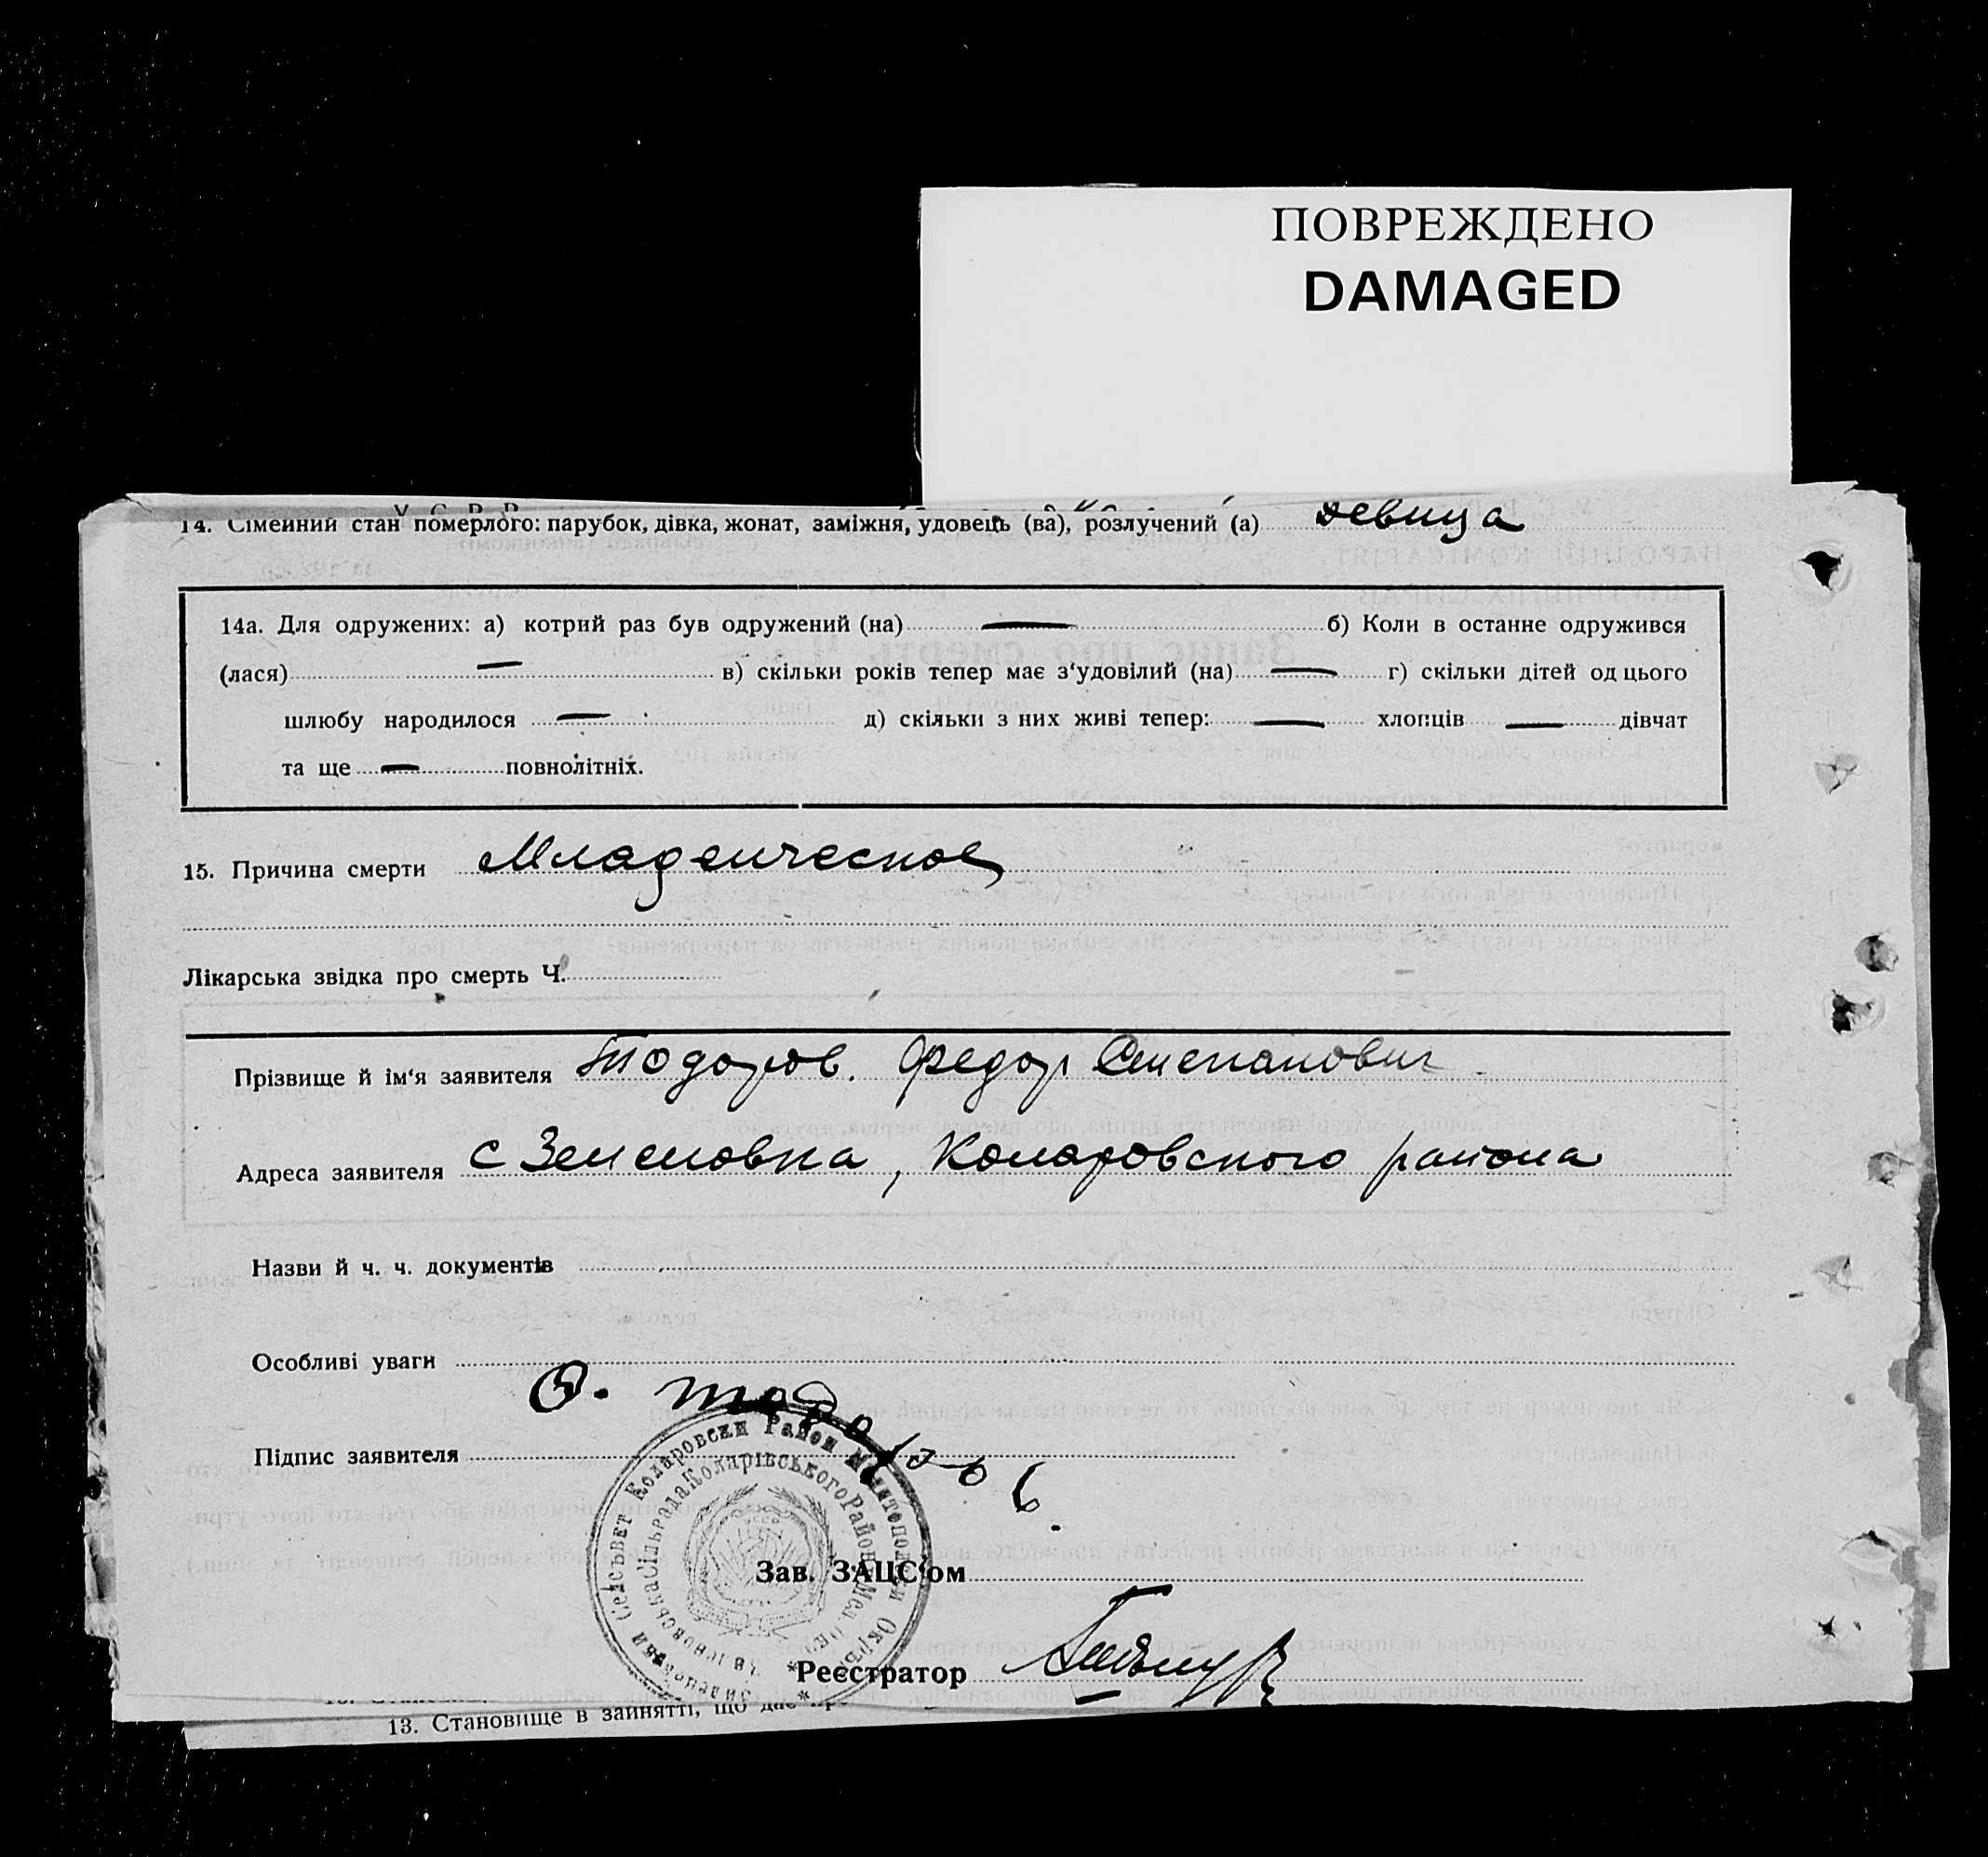 ПОВРЕЖДЕНО
DAMAGED
14. Сімейний стан померлого: парубок, дівка, жонат, заміжня, удовець (ва), розлучений (а) девица
14а. Для одружених: а) котрий раз був одружений (на) — б) Коли в останне одружився
(лася) — в) скільки років тепер має з'удовілий (на) — г) скільки дітей од цього
шлюбу народилося — д) скільки з них живі тепер: — хлопців — дівчат
та ще — повнолітніх.
15. Причина смерти Младенческое
Лікарська звідка про смерть Ч.
Прізвище й ім'я заявителя Тодоров. Федор Степанович
Адреса заявителя с Зеленовка, Коларовского района
Назви й ч. ч. документів
Особливі уваги
Підпис заявителя Ф. Тодоров.
Коларовски Район Мелитополски
Сільрада Коларівського Району Мел.
Зав. ЗАЦС'ом
Реєстратор
13. Становище в зайнятті, що дає